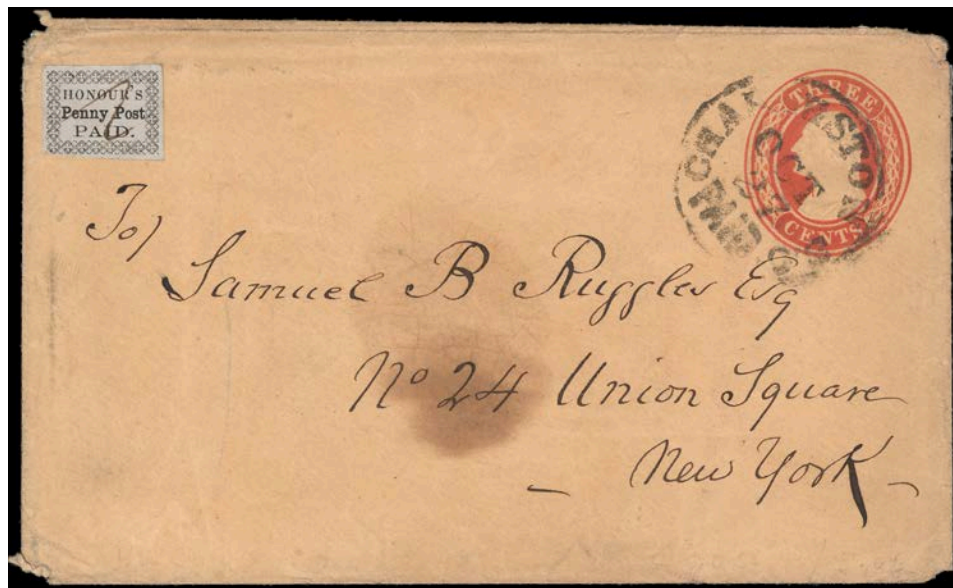 HONOUR'S
Penny Post
PAID.
THREE
CENTS
CHARLESTON
OCT
PAID
To/
Samuel B Ruggles Esq
No 24 Union Square
New York